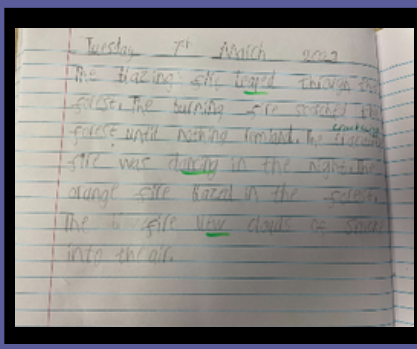 Tuesday 7th March
The blazing fire raged through the
forest. The burning fire scorched the
forest until nothing
fire was dancing in the night. The
orange fire blazed in the forest.
The fire clouds of smoke
into the air.